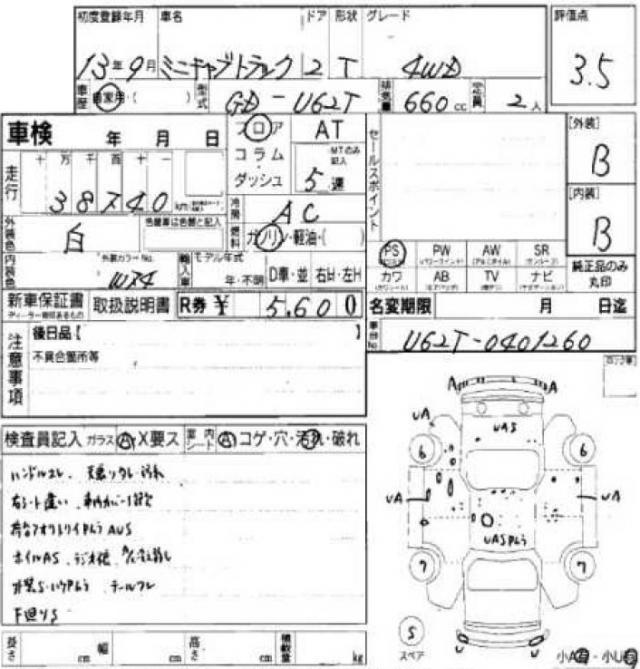 初度登録年月 車名 ドア 形状 グレード 評価点
13年9月 ミニキャブトラック 2 T 4WD 3.5
車歴 自家用・( ) 型式 GD-U62T 排気量 660cc 定員 2人
車検 年 月 日 フロア AT セールスポイント [外装]
コラム MTのみ記入 B
ダッシュ 5速
走行 十 万 千 百 十 一
38740 km
冷房 AC [内装]
外装色 白 色替車は色替と記入 燃料 ガソリン・軽油・( ) B
PS PW AW SR
内装色 外装カラーNo. W24 輸入車 モデル年式 年・不明 D車・並 右H・左H カワ AB TV ナビ 純正品のみ丸印
新車保証書 取扱説明書 R券 ¥ 5,600 名変期限 月 日迄
ディーラー捺印あるもの
車台No. U62T-0401260
注意事項 後日品[ ]
不具合箇所等
検査員記入 ガラス A・X要ス 室内 シート A コゲ・穴・汚れ・破れ
ハンドルスレ
右シート違い
ホイルAS
下廻りS
A A
UA UAS
6 6
UA UA
7 7
S
スペア
U U
小A・小U
長さ cm 幅 cm 高さ cm 積載量 kg